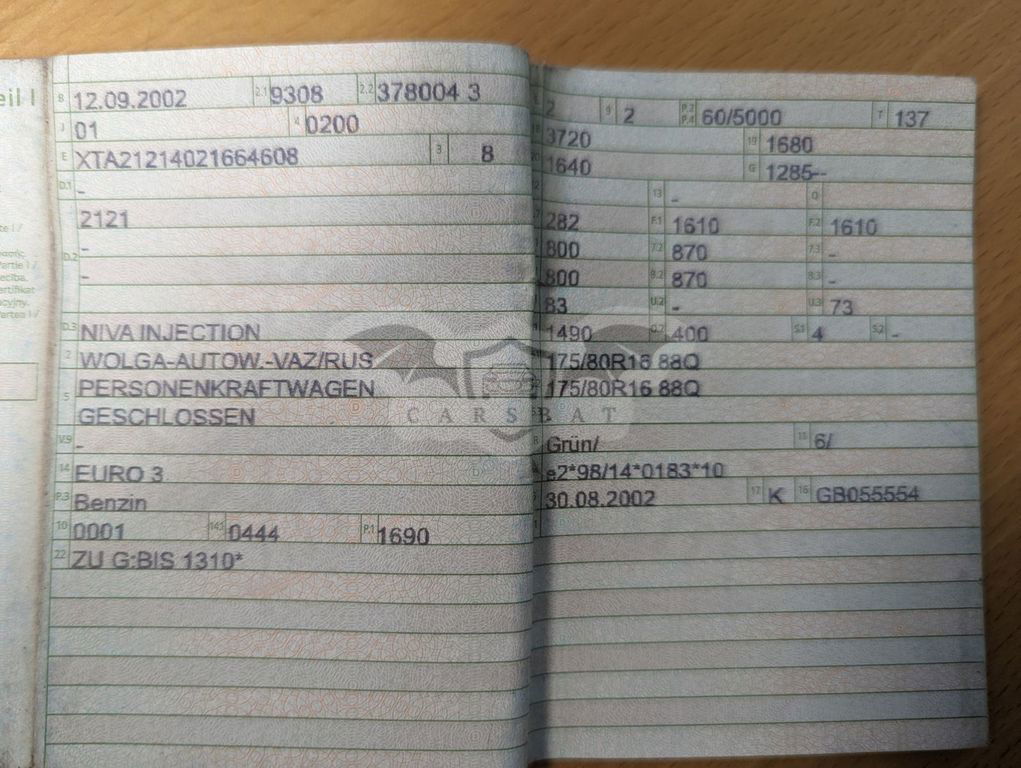 eil I
B 12.09.2002 2.1 9308 2.2 378004 3
J 01 4 0200
E XTA21214021664608 3 8
D.1 -
2121
D.2 -
-
D.3 NIVA INJECTION
2 WOLGA-AUTOW.-VAZ/RUS
5 PERSONENKRAFTWAGEN
GESCHLOSSEN
V.9 -
14 EURO 3
P.3 Benzin
10 0001 14.1 0444 P.1 1690
22 ZU G:BIS 1310*
2 9 2 P.2 P.4 60/5000 T 137
18 3720 19 1680
20 1640 G 1285--
13 - Q
282 F.1 1610 F.2 1610
800 7.2 870 7.3 -
800 8.2 870 8.3 -
83 U.2 - U.3 73
1490 O.2 400 S.1 4 S.2 -
175/80R16 88Q
175/80R16 88Q
Grün/ 11 6/
e2*98/14*0183*10
30.08.2002 17 K 16 GB055554
te I /
Partie I /
ecība.
ertifikat
acyjny.
Partea I /
CARSBAT